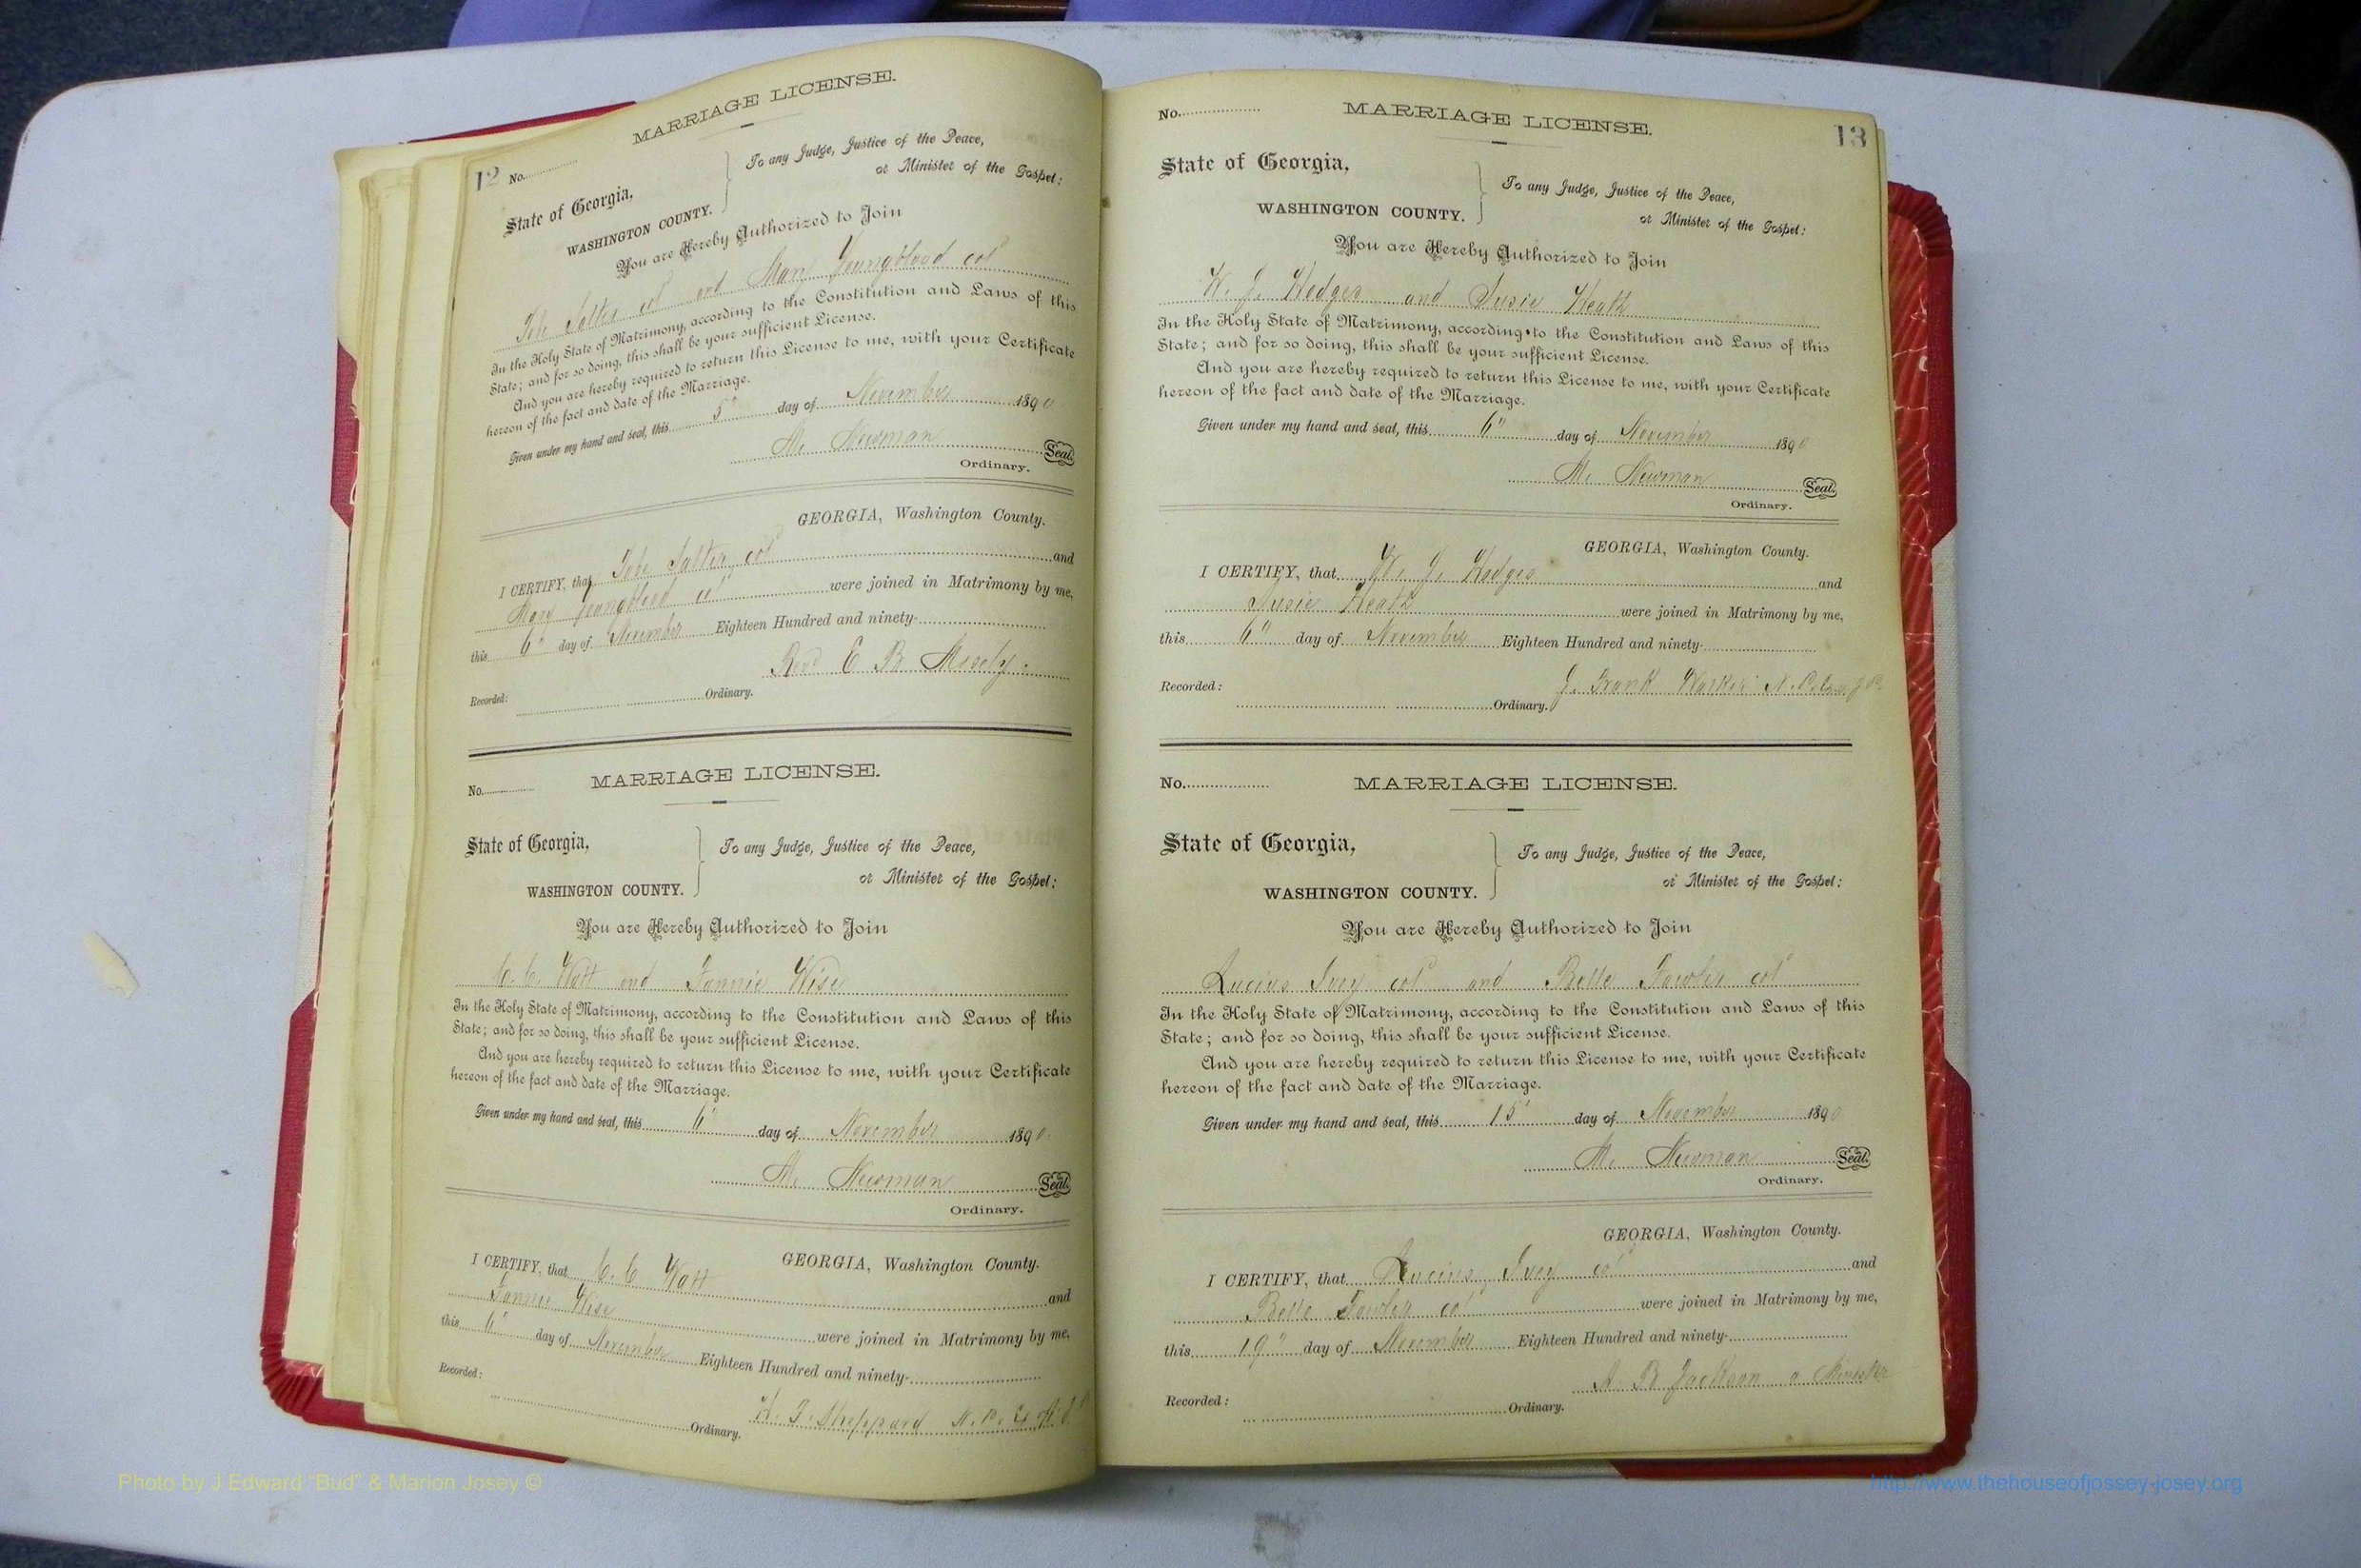 12 No.
MARRIAGE LICENSE.
State of Georgia,
WASHINGTON COUNTY.
To any Judge, Justice of the Peace,
or Minister of the Gospel:
You are Hereby Authorized to Join
Tobe Salter col and Mary Youngblood col
In the Holy State of Matrimony, according to the Constitution and Laws of this
State; and for so doing, this shall be your sufficient License.
And you are hereby required to return this License to me, with your Certificate
hereon of the fact and date of the Marriage.
Given under my hand and seal, this 5" day of November 1890
M. Newman Seal.
Ordinary.
GEORGIA, Washington County.
I CERTIFY, that Tobe Salter col and
Mary Youngblood col were joined in Matrimony by me,
this 6" day of November Eighteen Hundred and ninety-
Revd E B Mosely.
Recorded: Ordinary.
No.
MARRIAGE LICENSE.
State of Georgia,
WASHINGTON COUNTY.
To any Judge, Justice of the Peace,
or Minister of the Gospel:
You are Hereby Authorized to Join
C. C. Watt and Fannie Wise
In the Holy State of Matrimony, according to the Constitution and Laws of this
State; and for so doing, this shall be your sufficient License.
And you are hereby required to return this License to me, with your Certificate
hereon of the fact and date of the Marriage.
Given under my hand and seal, this 6" day of November 1890.
M. Newman Seal.
Ordinary.
GEORGIA, Washington County.
I CERTIFY, that C. C Watt and
Fannie Wise were joined in Matrimony by me,
this 6" day of November Eighteen Hundred and ninety-
Sheppard N. P.
Recorded: Ordinary.
No.
MARRIAGE LICENSE.
13
State of Georgia,
WASHINGTON COUNTY.
To any Judge, Justice of the Peace,
or Minister of the Gospel:
You are Hereby Authorized to Join
W. J. Hodges and Susie Heath
In the Holy State of Matrimony, according to the Constitution and Laws of this
State; and for so doing, this shall be your sufficient License.
And you are hereby required to return this License to me, with your Certificate
hereon of the fact and date of the Marriage.
Given under my hand and seal, this 6" day of November 1890
M. Newman Seal.
Ordinary.
GEORGIA, Washington County.
I CERTIFY, that W. J. Hodges and
Susie Heath were joined in Matrimony by me,
this 6" day of November Eighteen Hundred and ninety-
J. Frank Walker N. P.
Recorded: Ordinary.
No.
MARRIAGE LICENSE.
State of Georgia,
WASHINGTON COUNTY.
To any Judge, Justice of the Peace,
or Minister of the Gospel:
You are Hereby Authorized to Join
Lucius Ivey col and Belle Fowler col
In the Holy State of Matrimony, according to the Constitution and Laws of this
State; and for so doing, this shall be your sufficient License.
And you are hereby required to return this License to me, with your Certificate
hereon of the fact and date of the Marriage.
Given under my hand and seal, this 15" day of November 1890
M. Newman Seal.
Ordinary.
GEORGIA, Washington County.
I CERTIFY, that Lucius Ivey col and
Belle Fowler col were joined in Matrimony by me,
this 19" day of November Eighteen Hundred and ninety-
A B Jackson a Minister
Recorded: Ordinary.
Photo by J Edward "Bud" & Marion Josey ©
http://www.thehouseofjossey-josey.org